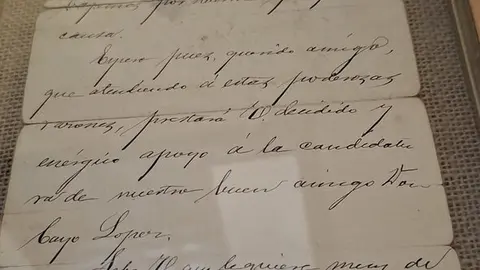 por nuestra
causa.
Espero pues, querido amigo,
que atendiendo á estas poderosas
razones, prestará V. decidido y
enérgico apoyo á la candidatu
ra de nuestro buen amigo Don
Cayo Lopez.
que le quiere muy de